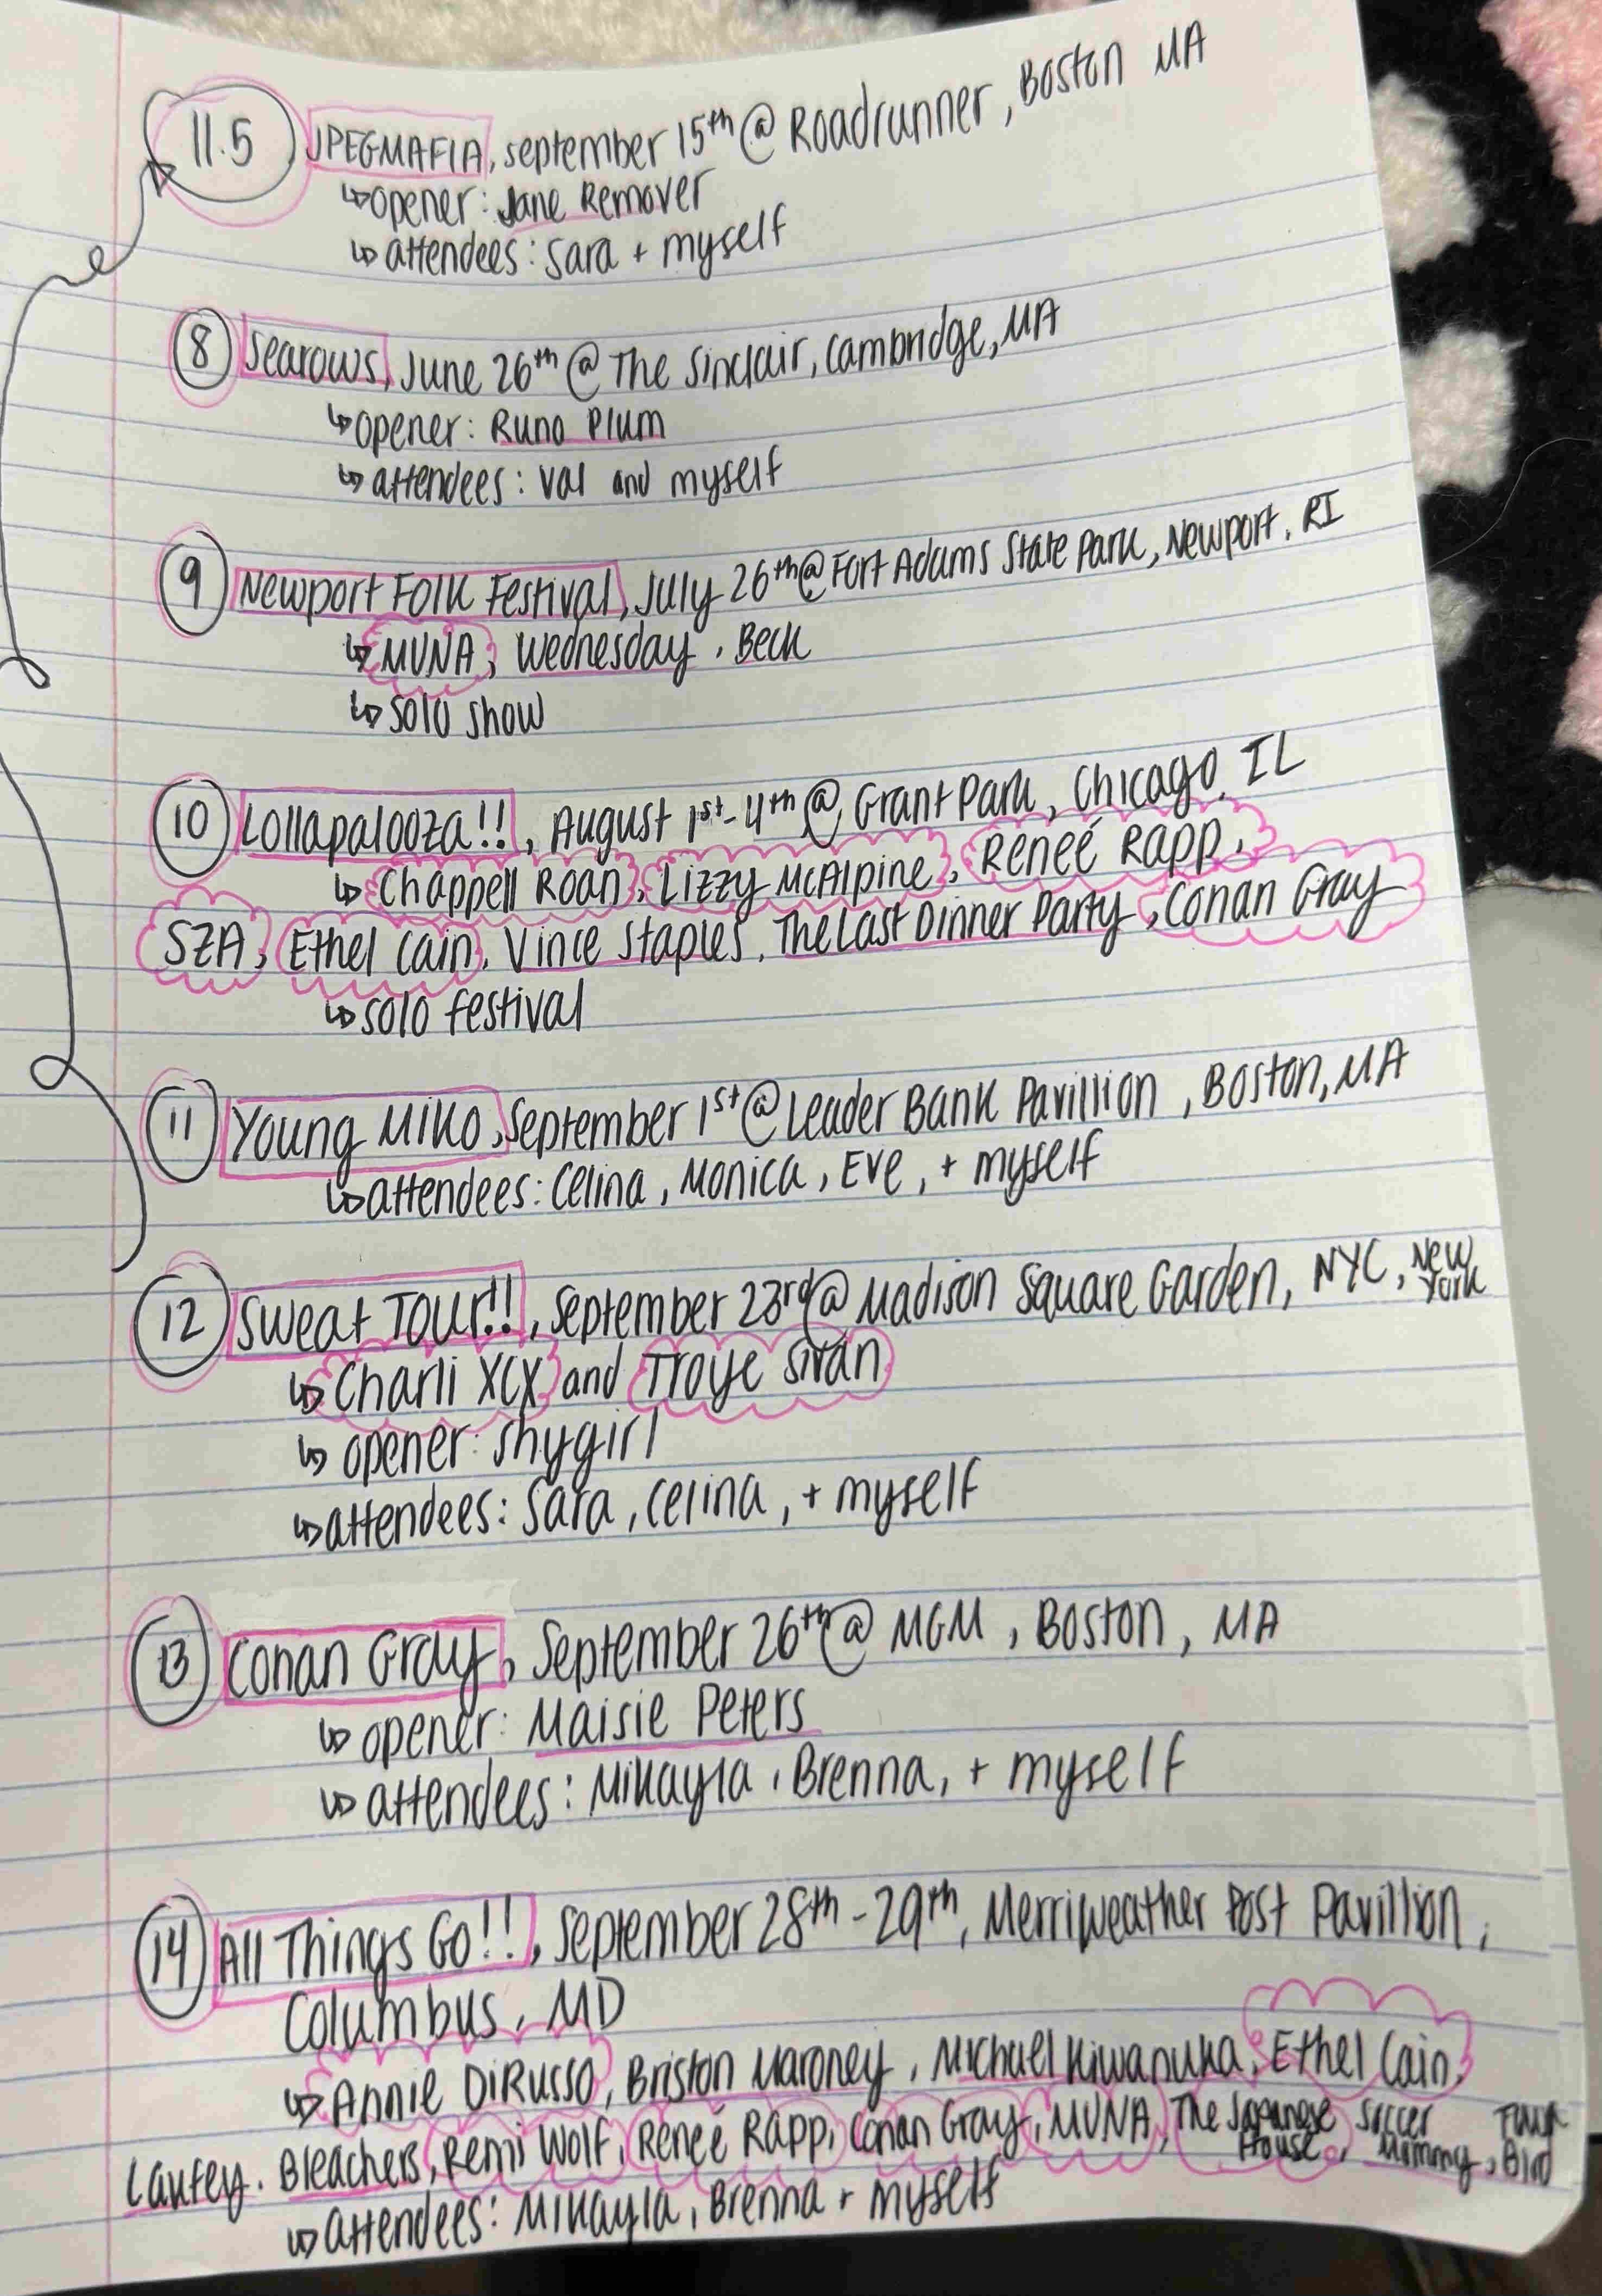 11.5 JPEGMAFIA, september 15th @ Roadrunner, Boston MA
↳ opener: Jane Remover
↳ attendees: Sara + myself
8 Searows, June 26th @ The Sinclair, Cambridge, MA
↳ opener: Runo Plum
↳ attendees: Val and myself
9 Newport Folk Festival, July 26th @ Fort Adams State Park, Newport, RI
↳ MUNA, Wednesday, Beck
↳ solo show
10 Lollapalooza!!, August 1st-4th @ Grant Park, Chicago, IL
↳ Chappell Roan, Lizzy McAlpine, Reneé Rapp,
SZA, Ethel Cain, Vince Staples, The Last Dinner Party, Conan Gray
↳ solo festival
11 Young Miko, September 1st @ Leader Bank Pavillion, Boston, MA
↳ attendees: Celina, Monica, Eve, + myself
12 Sweat Tour!!, September 23rd @ Madison Square Garden, NYC, New York
↳ Charli XCX and Troye Sivan
↳ opener: shygirl
↳ attendees: Sara, Celina, + myself
13 Conan Gray, September 26th @ MGM, Boston, MA
↳ opener: Maisie Peters
↳ attendees: Mikayla, Brenna, + myself
14 All Things Go!!, September 28th-29th, Merriweather Post Pavillion,
Columbus, MD
↳ Annie DiRusso, Briston Maroney, Michael Kiwanuka, Ethel Cain,
Laufey, Bleachers, Remi Wolf, Reneé Rapp, Conan Gray, MUNA, The Japanese House, Soccer Mommy, Flower Bird
↳ attendees: Mikayla, Brenna + myself